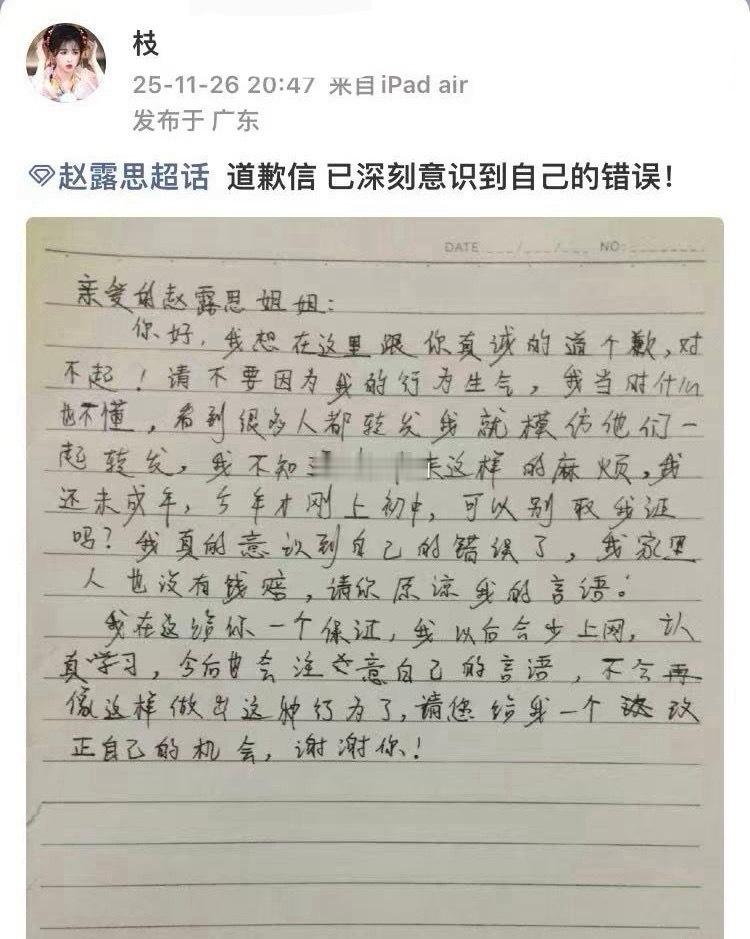 枝
25-11-26 20:47 来自iPad air
发布于 广东
赵露思超话 道歉信 已深刻意识到自己的错误!
DATE / / NO:
亲爱的赵露思姐姐:
你好,我想在这里跟你真诚的道个歉,对
不起!请不要因为我的行为生气,我当时什么
也不懂,看到很多人都转发我就模仿他们一
起转发,我不知 来这样的麻烦,我
还未成年,今年才刚上初中,可以别取我证
吗?我真的意识到自己的错误了,我家里
人也没有钱赔,请你原谅我的言语。
我在这给你一个保证,我以后会少上网,认
真学习,今后也会注意自己的言语,不会再
像这样做出这种行为了,请您给我一个改
正自己的机会,谢谢你!